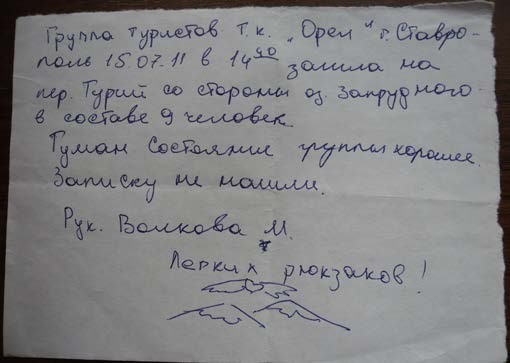 Группа туристов т.к. „Орел" г. Ставро-
поль 15.07.11 в 14⁰⁰ зашла на
пер. Турий со стороны оз. Запрудного
в составе 9 человек.
Туман Состояние группы хорошее.
Записку не нашли.
Рук. Волкова М.
Легких рюкзаков!